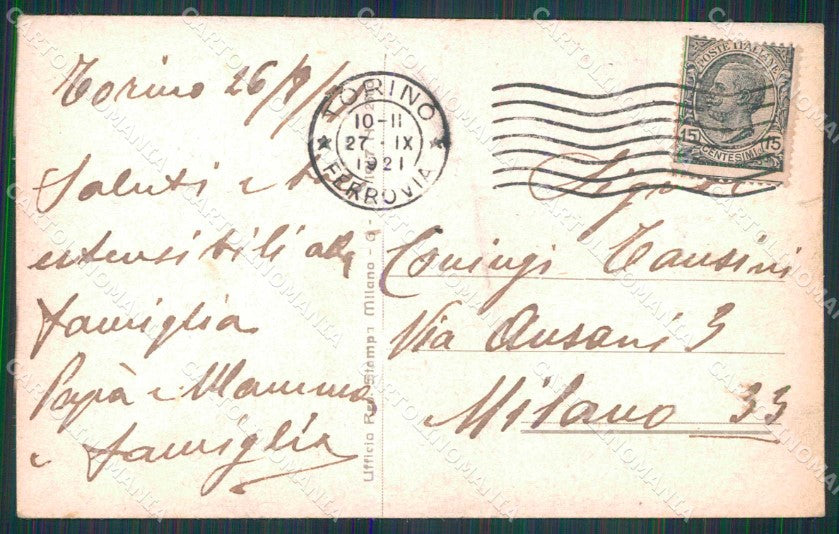 Torino 26/9/
Saluti e
estensibili alla
famiglia
Papà e Mamma
e famiglia
TORINO
10-11
27 · IX
1921
FERROVIA
POSTE ITALIANE
15 CENTESIMI 15
Coniugi Tansini
Via Ausani 3
Milano 33
Ufficio Rev. Stampa Milano
CARTOLINOMANIA